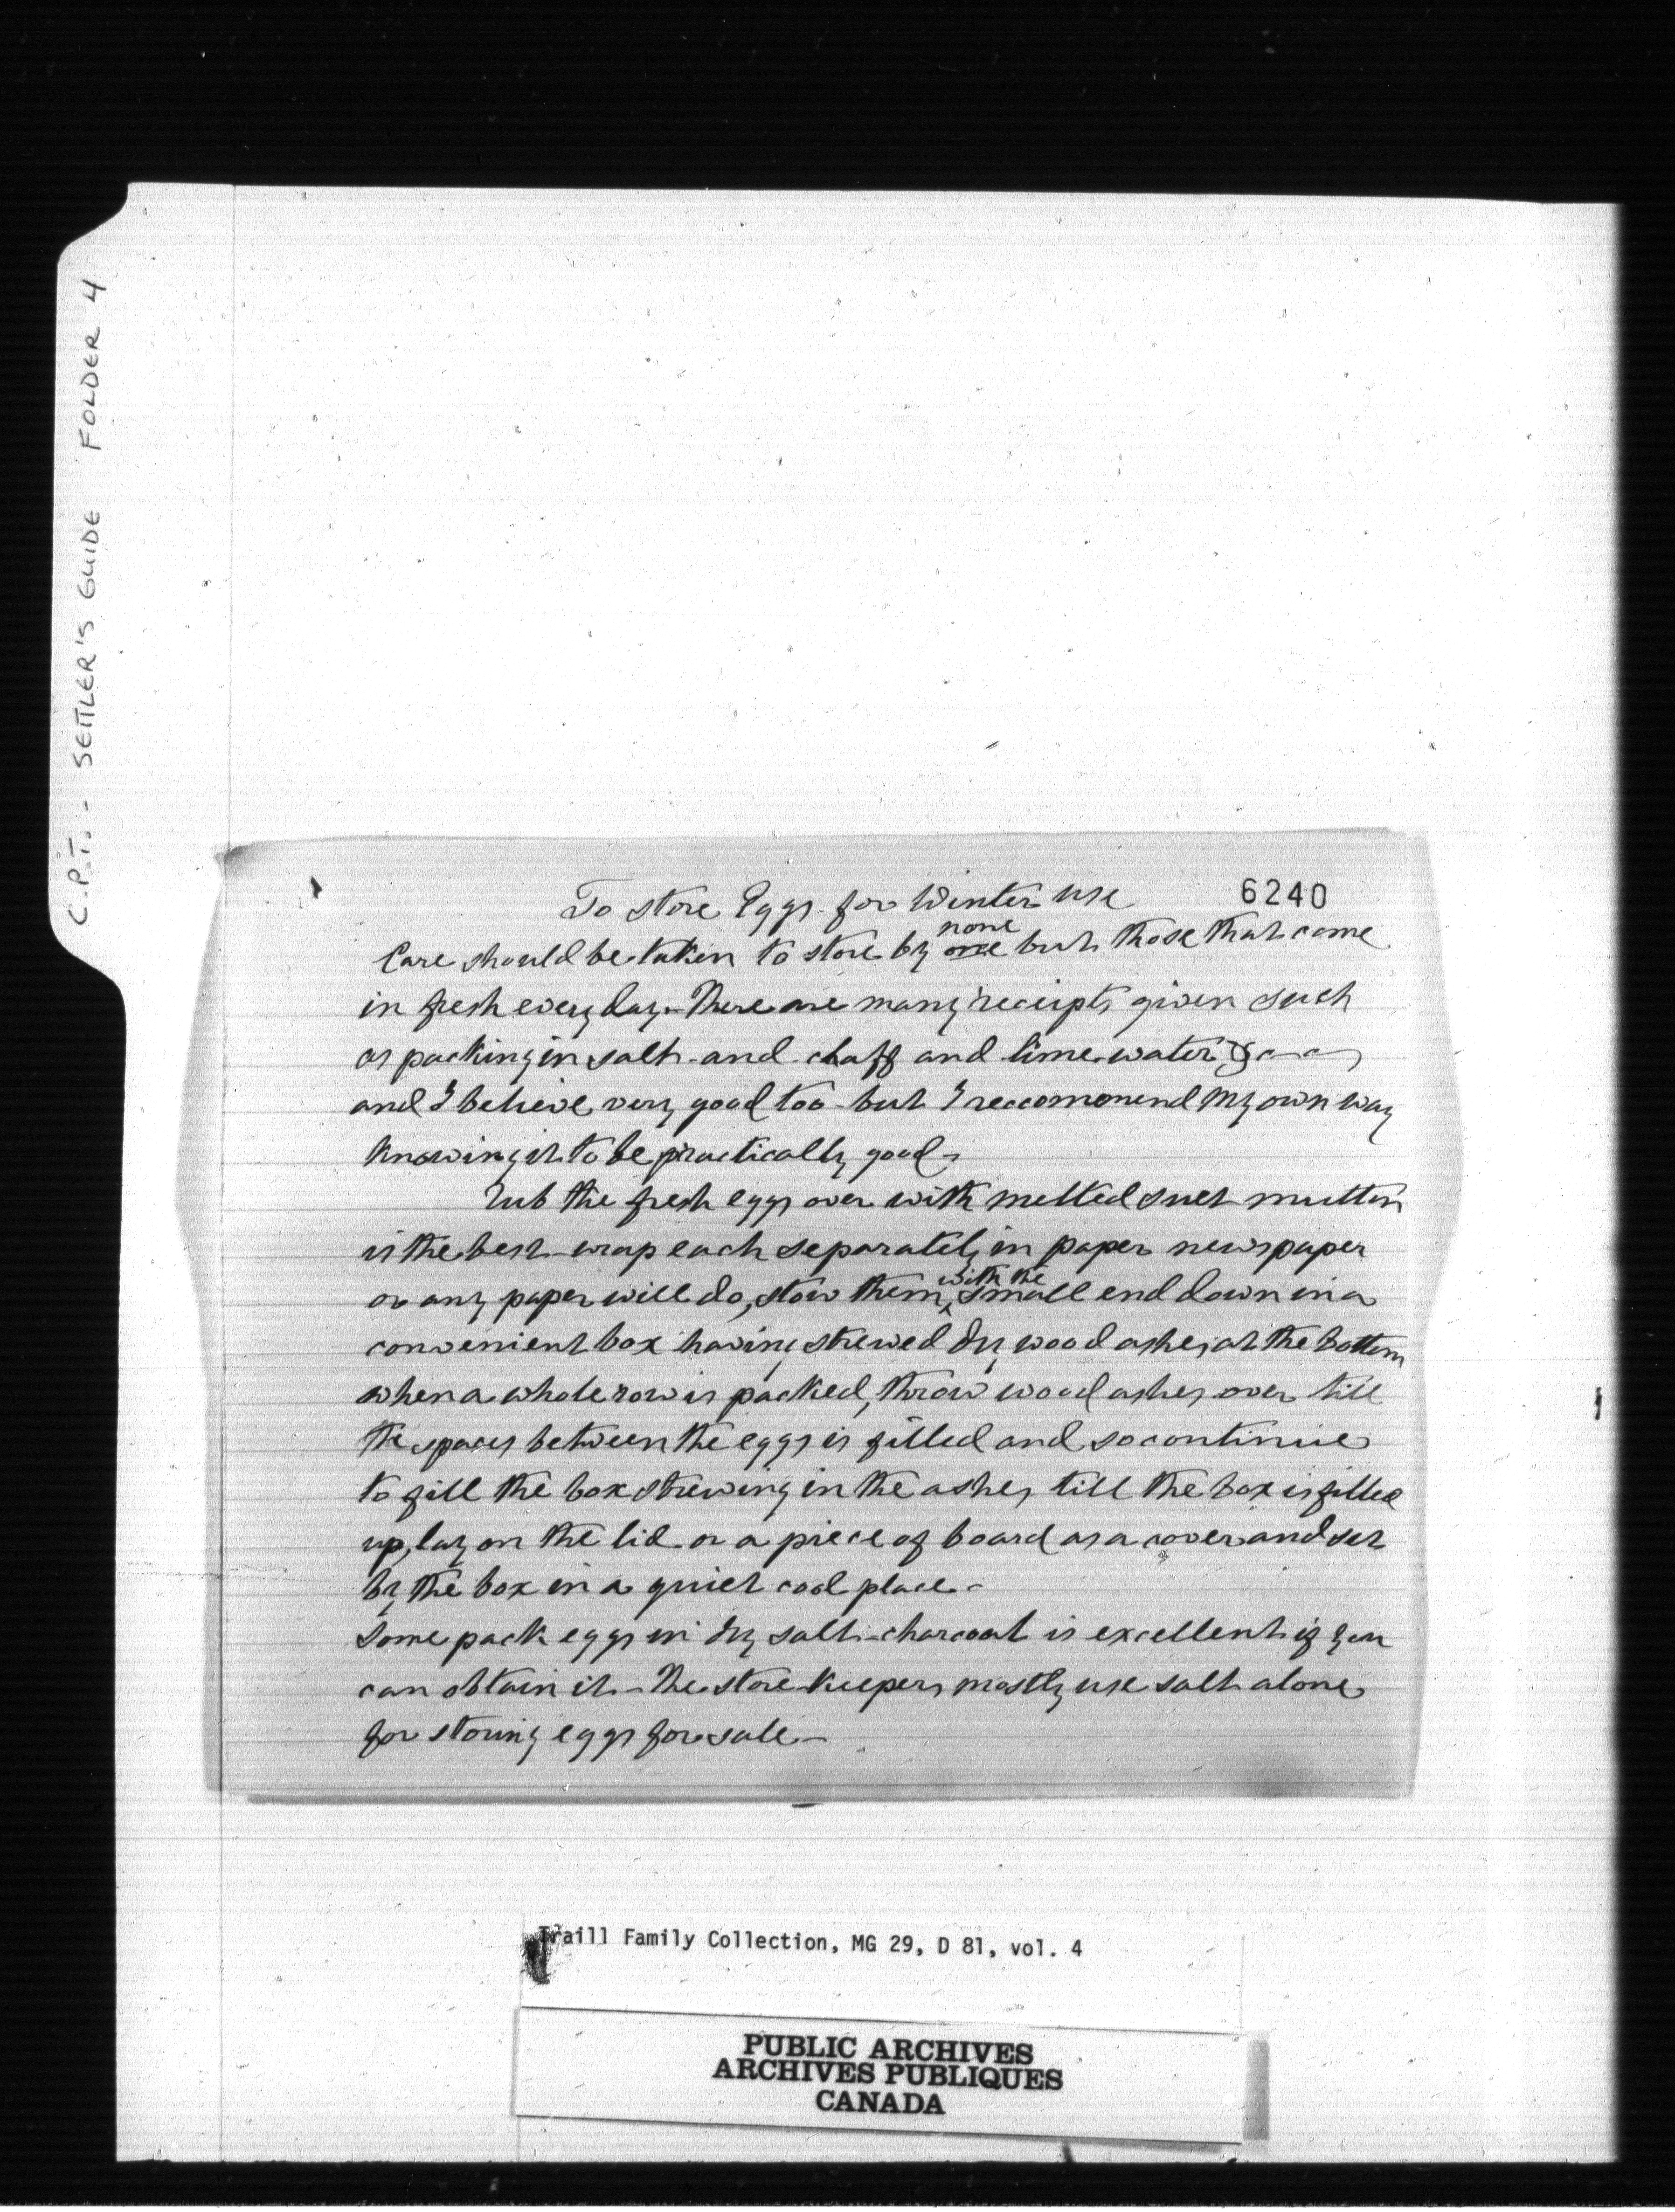 C.P.T. - SETTLER'S GUIDE FOLDER 4
6240
To store Eggs for Winter use
Care should be taken to store by one none but those that come
in fresh every day - There are many receipts given such
as packing in salt - and chaff and lime water &c
and I believe very good too - but I reccommend my own way
knowing it to be practically good -
Rub the fresh eggs over with melted suet mutton
is the best - wrap each separately in paper newspaper
or any paper will do, stow them, with the small end down in a
convenient box having strewed dry wood ashes at the bottom
when a whole row is packed, throw wood ashes over till
the spaces between the eggs is filled and so continue
to fill the box strewing in the ashes till the box is filled
up, lay on the lid or a piece of board as a cover and set
by the box in a quiet cool place -
Some pack eggs in dry salt - charcoal is excellent if you
can obtain it - The store keepers mostly use salt alone
for storing eggs for sale -
Traill Family Collection, MG 29, D 81, vol. 4
PUBLIC ARCHIVES
ARCHIVES PUBLIQUES
CANADA